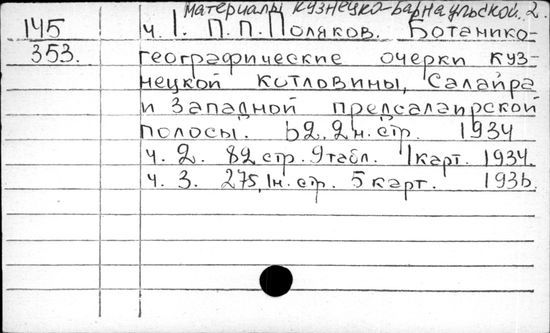 Материалы Кузнецко-Барнаульской. 2.
145 ч. 1. П. П. Поляков. Ботанико-
353. географические очерки Куз-
нецкой котловины, Салаира
и Западной предсалаирской
полосы. 62, 2 н. стр. 1934
ч. 2. 82 стр. 9 табл. 1 карт. 1934.
ч. 3. 275, 1 н. стр. 5 карт. 1936.